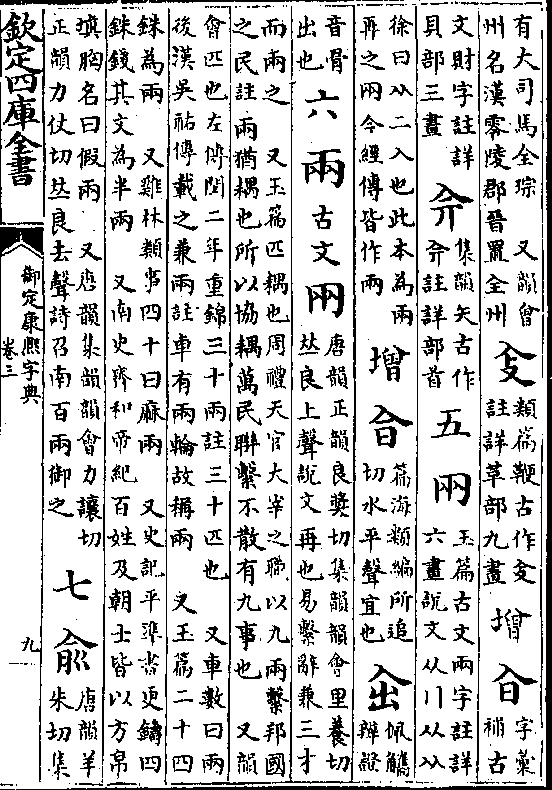 有大司馬全琮 又韻會
州名漢零陵郡晉置全州
㕝
類篇鞭古作㕝
註詳革部九畫
增
㒰
字彙
補古
文財字註詳
貝部三畫
𠓜
集韻矢古作
𠓜註詳部首
五
㒳
玉篇古文兩字註詳
六畫說文从川从从
徐曰从二入也此本為兩
再之兩今經傳皆作兩
增
篇海類編所追
切水平聲宜也
佩觿
辯證
音骨
出也
六
兩
古文㒳
唐韻正韻良奬切集韻韻會里養切
𠀤良上聲說文再也易繫辭兼三才
而兩之 又玉篇匹耦也周禮天官大宰之職以九兩繫邦國
之民註兩猶耦也所以協耦萬民聯繫不散有九事也 又韻
會匹也左傳閔二年重錦三十兩註三十匹也 又車數曰兩
後漢吳祐傳載之兼兩註車有兩輪故稱兩 又玉篇二十四
銖為兩 又雞林類事四十曰麻兩 又史記平準書更鑄四
銖錢其文為半兩 又南史齊和帝紀百姓及朝士皆以方帛
塡胸名曰假兩 又唐韻集韻韻會力讓切
正韻力仗切𠀤良去聲詩召南百兩御之
七
兪
唐韻羊
朱切集
欽定四庫全書
御定康熙字典
卷三
九